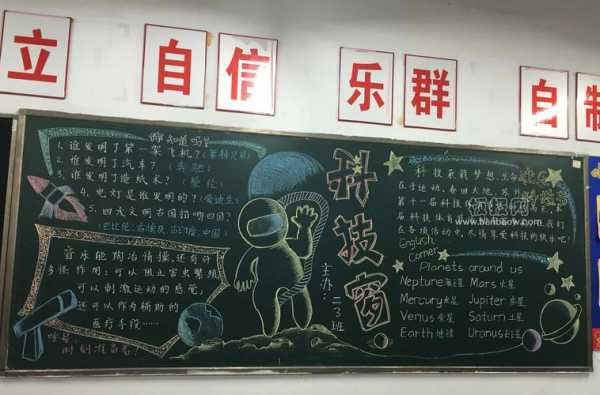 立 自信 乐群 自制
你知道吗?
1. 谁发明了第一架飞机?(莱特兄弟)
2. 谁发明了汽车?(卡尔
3. 谁发明了造纸术?(蔡伦)
4. 电灯是谁发明的?(爱迪生)
5. 四大文明古国指哪四国?
(巴比伦、古埃及、古印度、中国)
音乐能陶冶情操,还有许
多作用:可以阻立害虫繁殖
可以刺激运动的感觉,
还可以作为辅助的
医疗手段……
时刻准备着!
科技窗
主办:二3班
科技承载梦想,生命
在于运动。春回大地,
第十一届科技
届科技体育
在各项活动中,尽情享受科技的快乐吧!
English
Corner
Planets around us
Neptune海王星 Mars火星
Mercury水星 Jupiter木星
Venus金星 Saturn土星
Earth地球 Uranus天王星